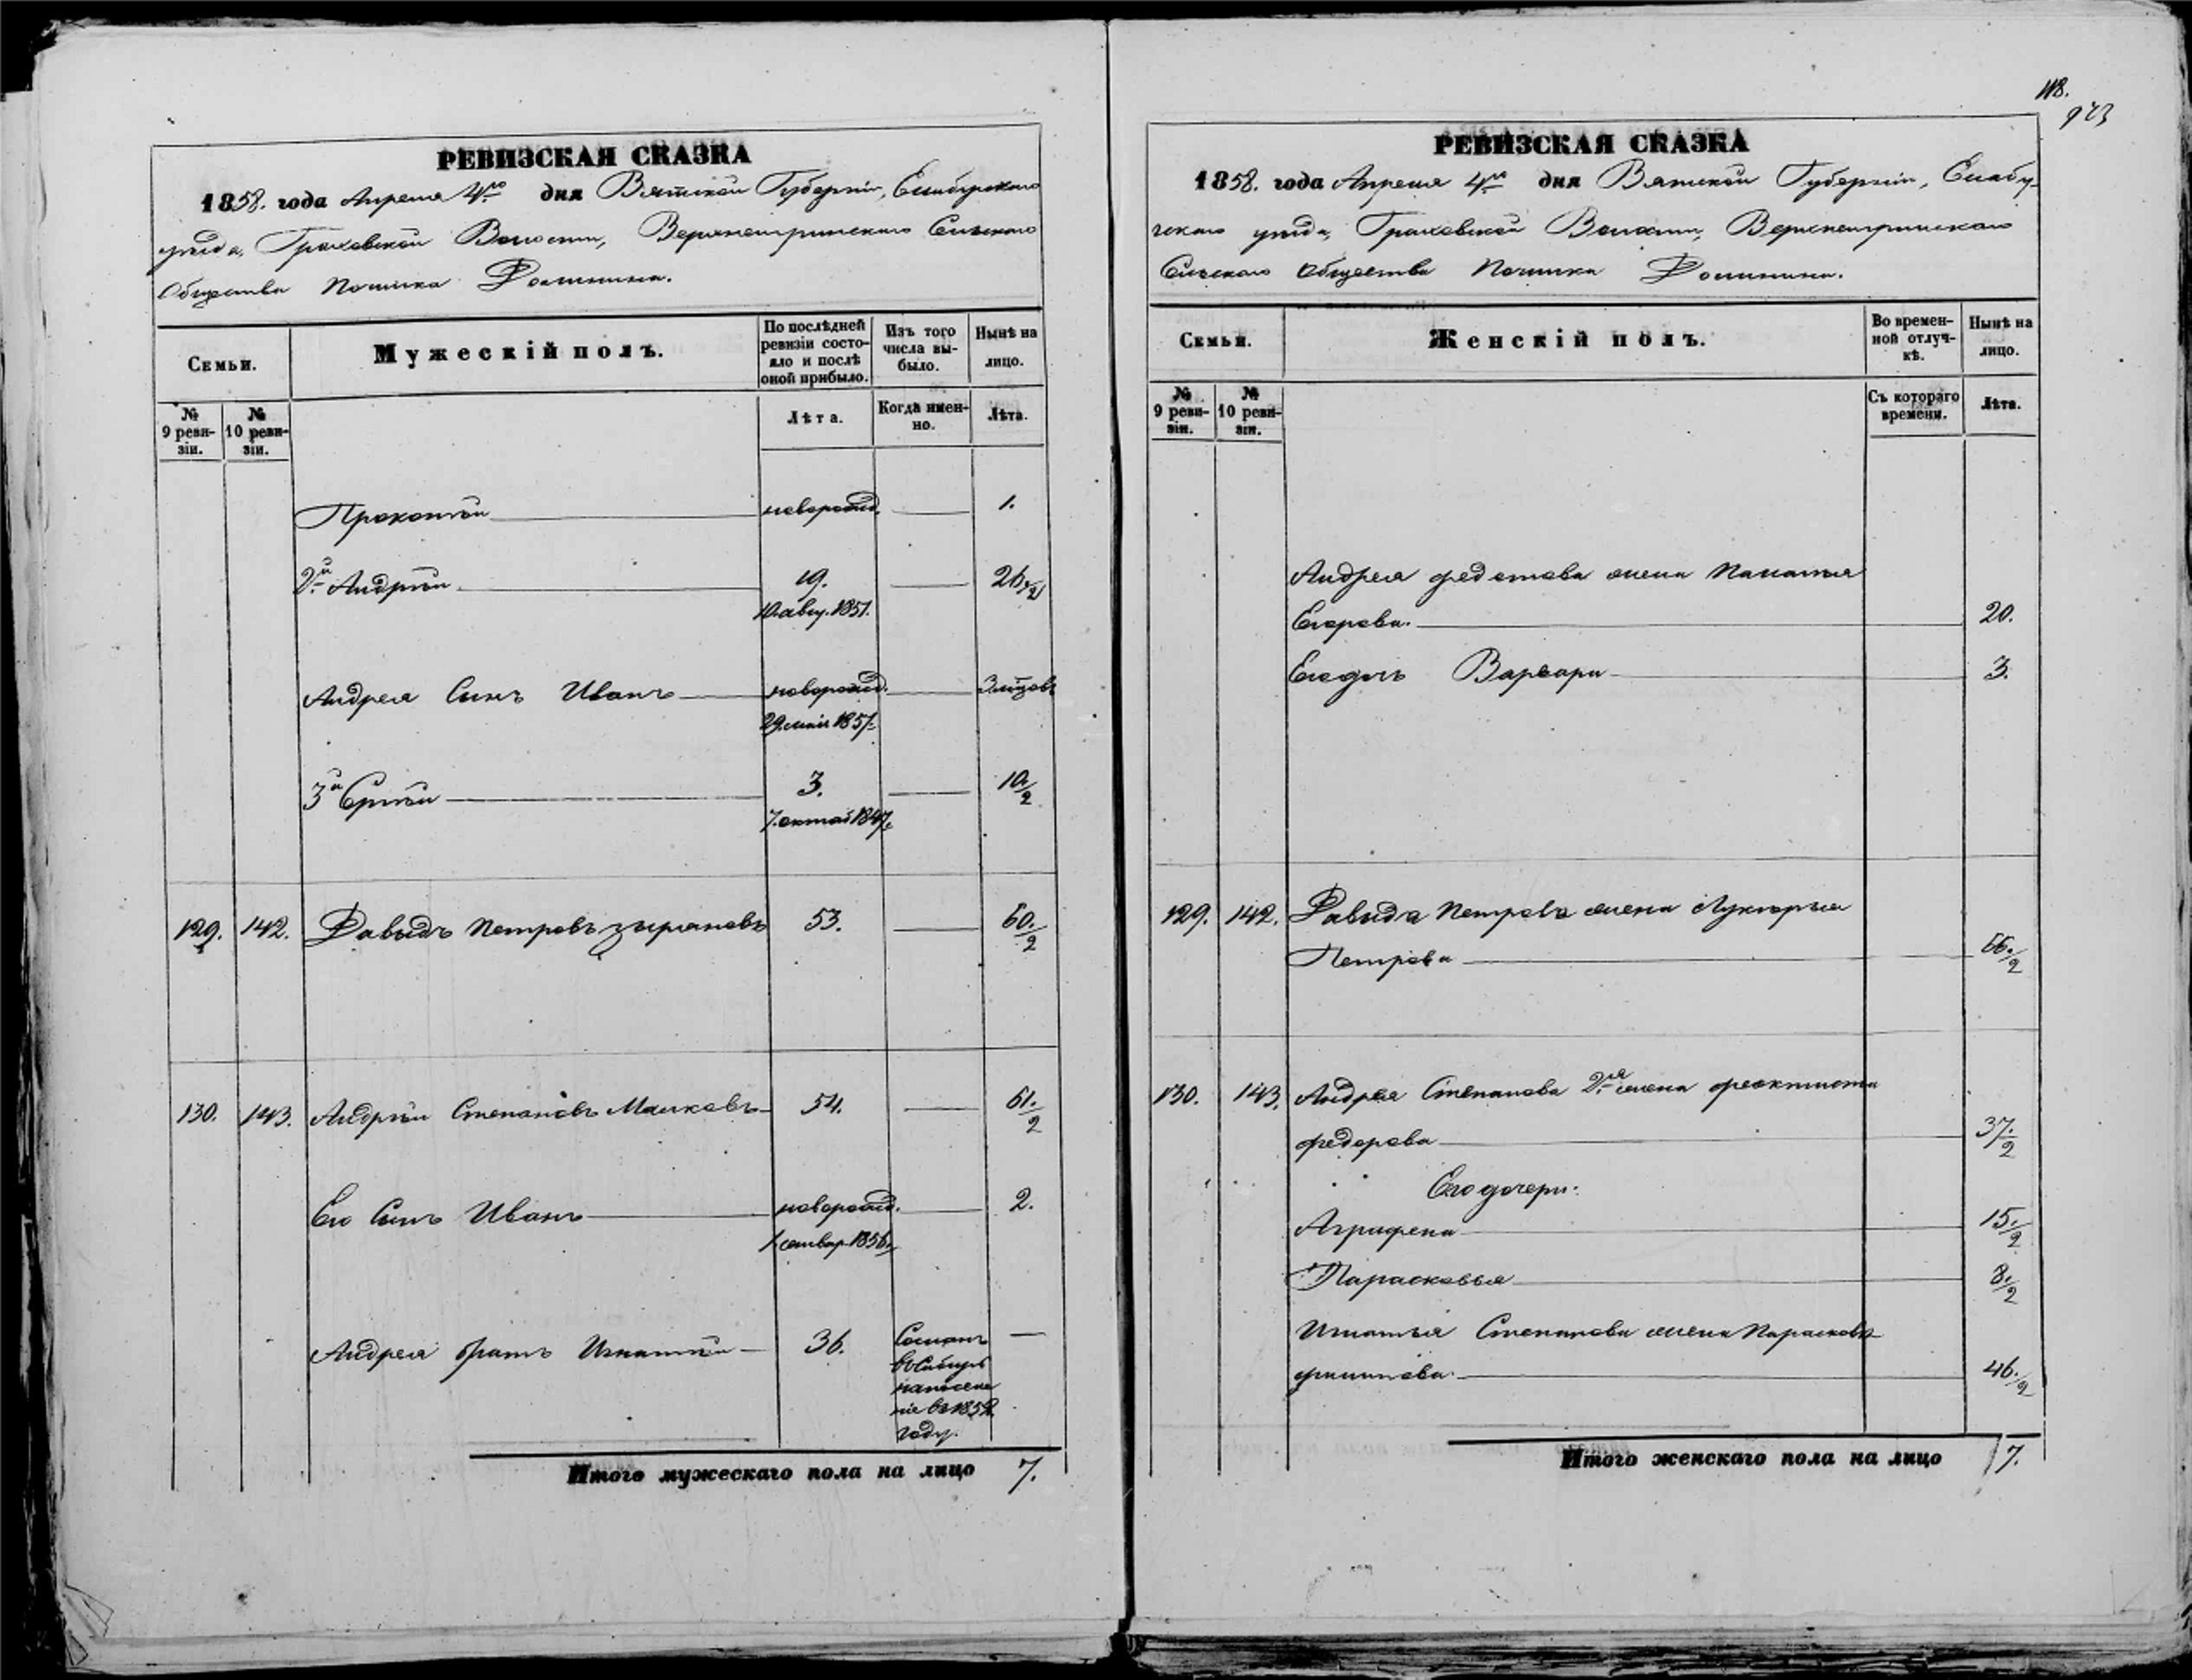 118.
923
РЕВИЗСКАЯ СКАЗКА
1858. года Апреля 4го дня Вятской Губерніи, Елабужскаго
уезда, Граховской Волости, Сельскаго
Общества Починка
Семьи.
Мужескій полъ.
По послѣдней ревизіи состояло и послѣ оной прибыло.
Изъ того числа выбыло.
Нынѣ на лицо.
№ 9 ревизіи.
№ 10 ревизіи.
Лѣта.
Когда именно.
Лѣта.
Прокопій новорожд. 1.
2й Андрей 19. 26/2
10. авгу. 1851.
Андрея Сынъ Иванъ новорожд.
29. 1857.
3й Сергей 3. 10/2
7. 1847.
129. 142. Давыдъ Петровъ Зыряновъ 53. 60./2
130. 143. Андрей Степановъ Малковъ 54. 61./2
Его Сынъ Иванъ новорожд. 2.
1856.
Андрея братъ Игнатій 36. Сосланъ —
в Сибирь
на поселе
ніе въ 1852
году.
Итого мужескаго пола на лицо 7.
РЕВИЗСКАЯ СКАЗКА
1858. года Апреля 4го дня Вятской Губерніи, Елабу-
жскаго уезда, Граховской Волости,
Сельскаго Общества Починка
Семьи.
Женскій полъ.
Во временной отлучкѣ.
Нынѣ на лицо.
№ 9 ревизіи.
№ 10 ревизіи.
Съ котораго времени.
Лѣта.
Андрея Федотова жена
Егорова. 20.
Его дочь Варвара 3.
129. 142. Давыда Петрова жена Лукерья
Петрова 66./2
130. 143. Андрея Степанова 2я жена Феоктиста
Федорова 37./2
Его дочери:
Аграфена 15./2
Парасковья 8./2
Игнатья Степанова жена Парасковья
Филипова. 46./2
Итого женскаго пола на лицо 7.